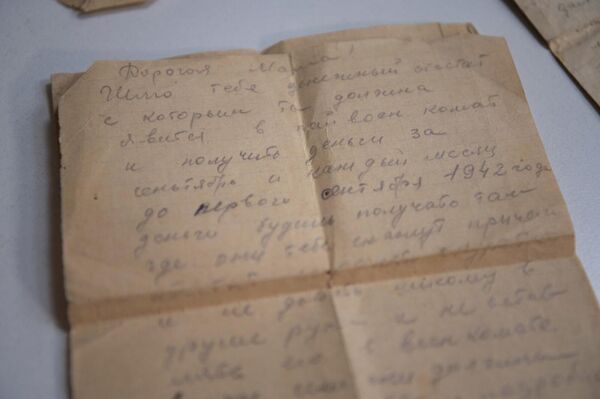 Дорогая Мама!
Шлю тебе денежный атестат
с которым ты должна
явится в рай воен комат
и получить деньги за
сентябрь и каждый месяц
до первого сентября 1942 года
деньги будешь получать там
где они тебе скажут причем
и не давать никому в
другие руки и не остав
лять его в военкомате
они должны